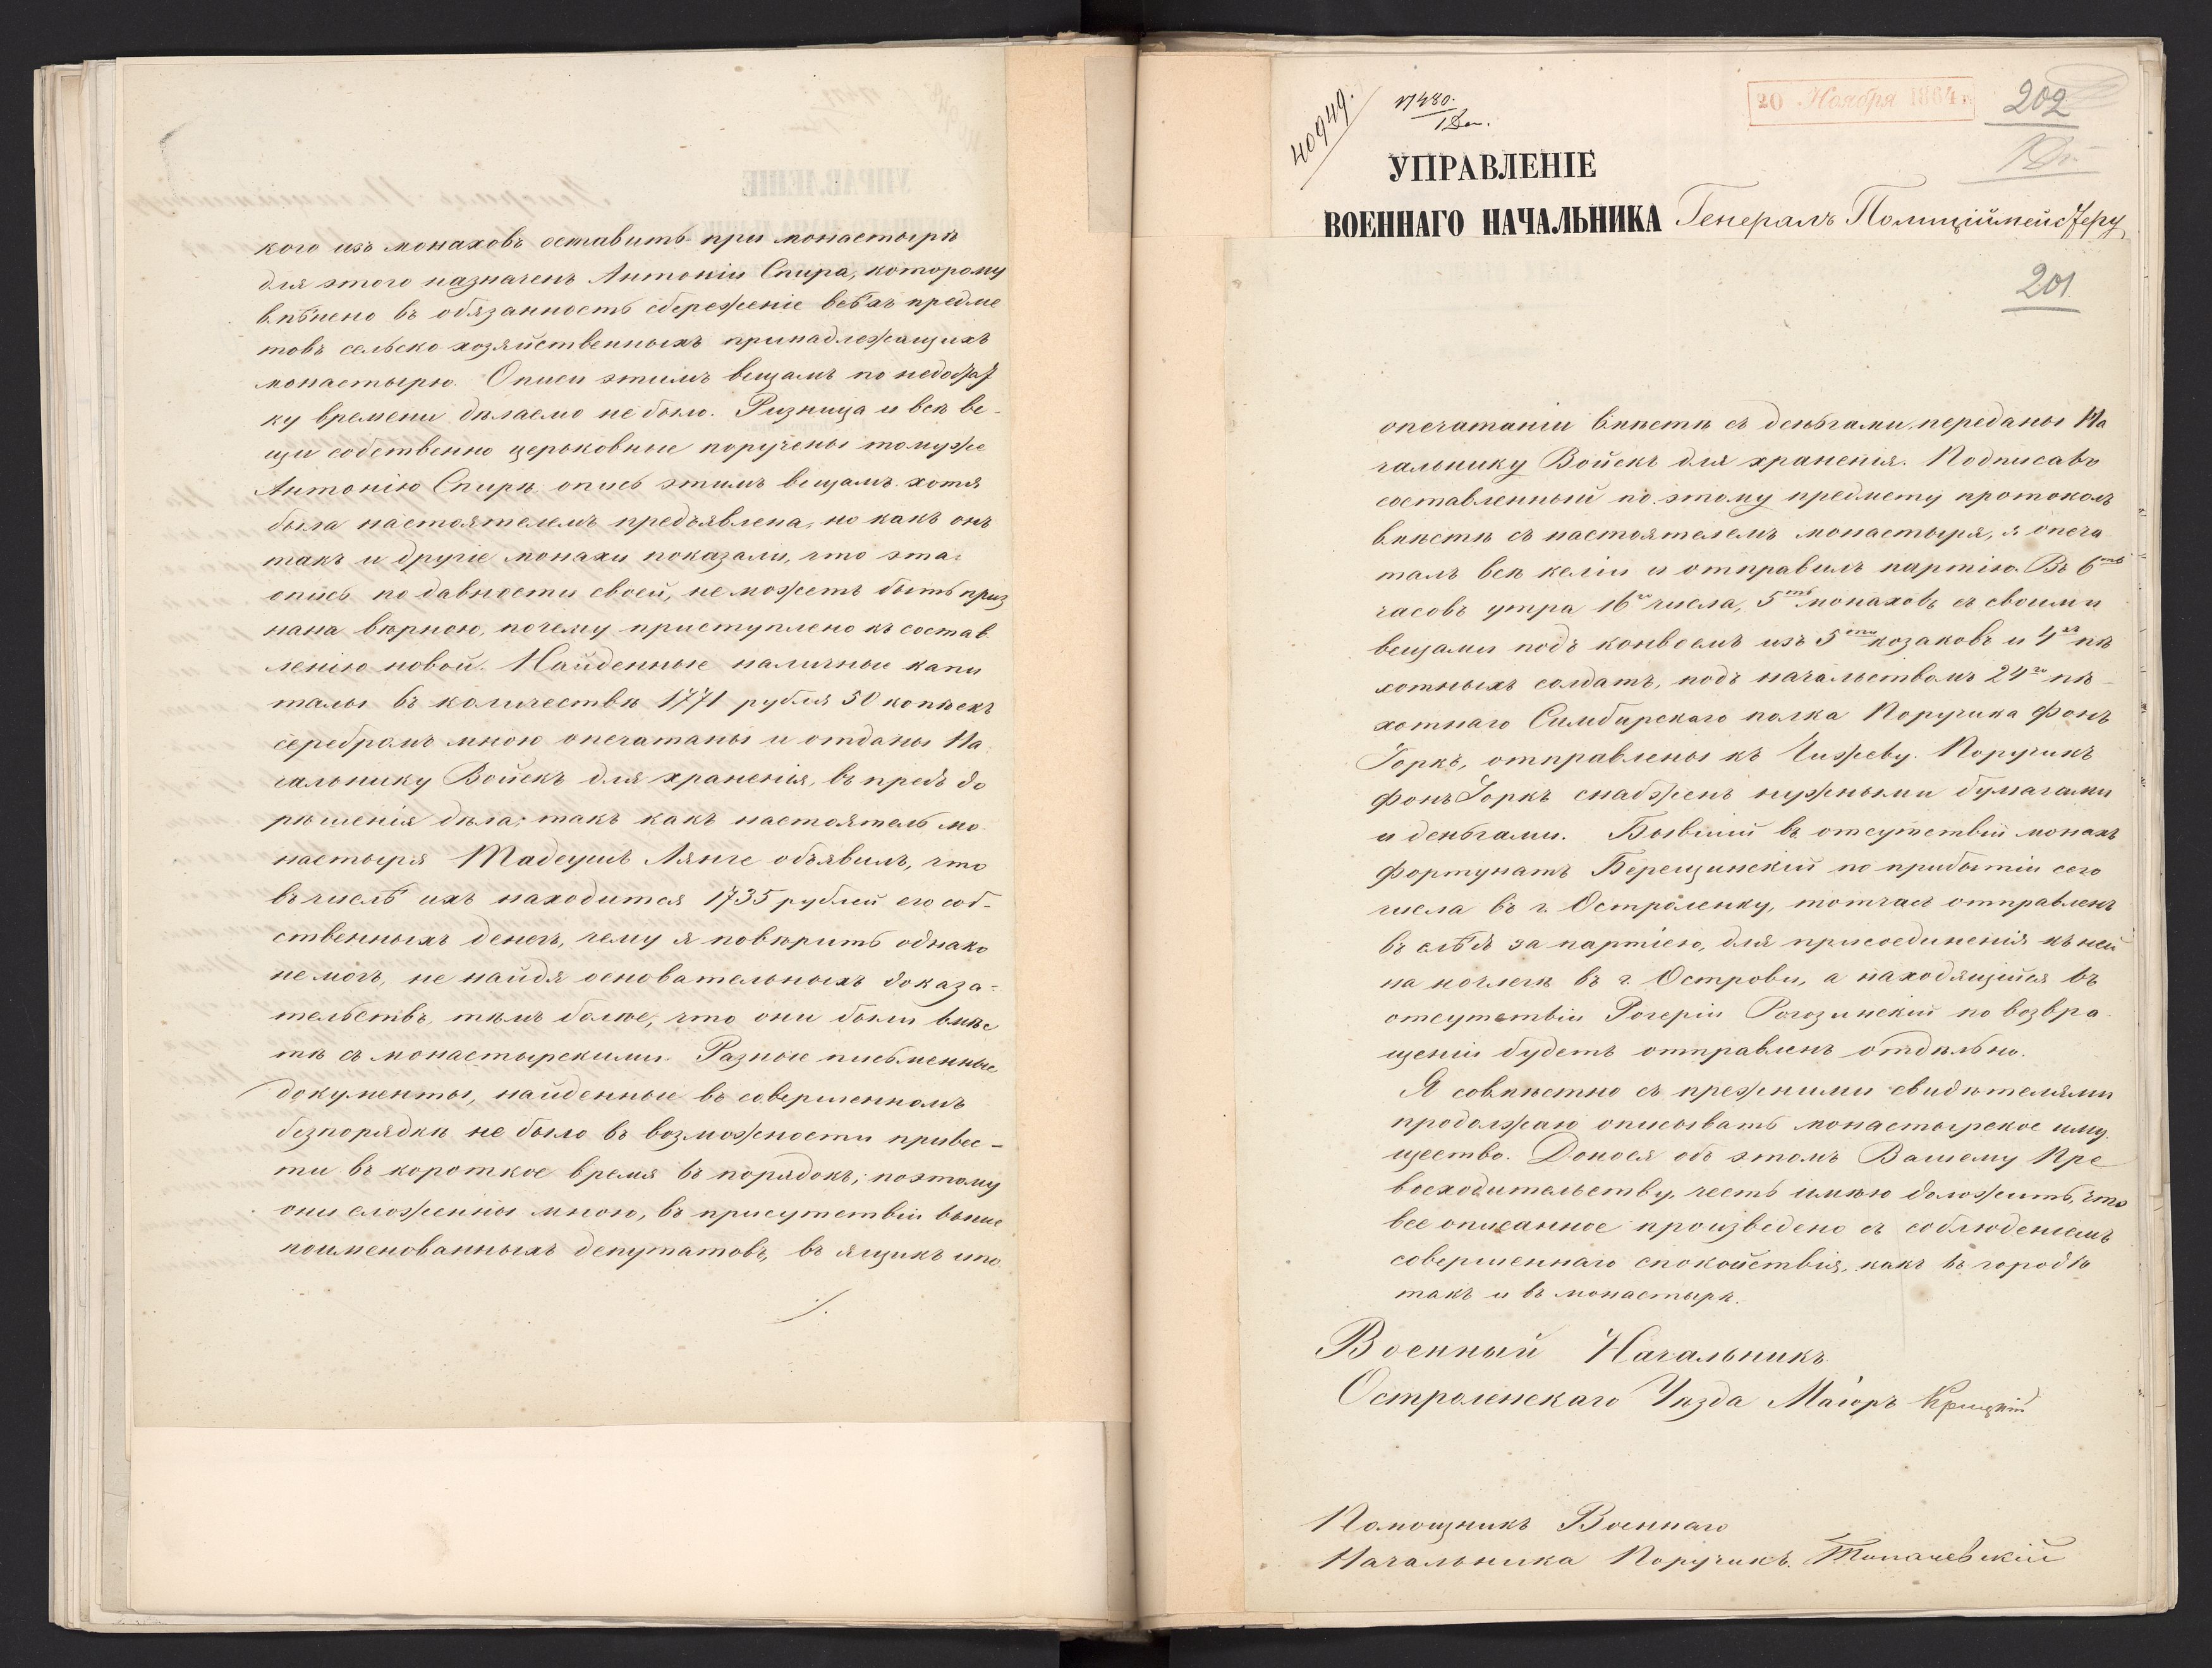 кого изъ монаховъ оставить при монастырѣ
для этого назначенъ Антоній Спира, которому
вмѣнено въ обязанность сбереженіе всѣхъ предме
товъ сельско хозяйственныхъ принадлежащихъ
монастырю. Описи этимъ вещамъ по недостат
ку времени дѣлаемо не было. Ризница и всѣ ве-
щи собственно церьковные поручены томуже
Антонію Спирѣ, опись этимъ вещамъ хотя
была настоятелемъ предъявлена, но какъ онъ
такъ и другіе монахи показали, что эта
опись по давности своей, не можетъ быть приз
нана вѣрною, почему приступлено къ состав
ленію новой. Найденные наличные капи
талы въ количествѣ 1771 рубля 50 копѣекъ
серебромъ мною опечатаны и отданы На
чальнику Войскъ для храненія, въ предь до
рѣшенія дѣла; такъ какъ настоятель мо
настыря Тадеушъ Лянге объявилъ, что
въ числѣ ихъ находится 1735 рублей его соб-
ственныхъ денегъ, чему я повѣрить однако
не могъ, не найдя основательныхъ доказа-
тельствъ, тѣмъ болѣе, что они были вмѣс
тѣ съ монастырскими. Разные письменные
документы, найденные въ совершенномъ
безпорядкѣ не было въ возможности привес-
ти въ короткое время въ порядокъ; поэтому
они сложенны мною, въ присутствіи выше
поименованныхъ депутатовъ, въ ящикъ и по
./.
40949.
17480.
1 Дек.
20 Ноября 1864 г.
202
УПРАВЛЕНІЕ
ВОЕННАГО НАЧАЛЬНИКА Генералъ Полиціймейстеру
201
опечатаніи вмѣстѣ съ деньгами переданы На
чальнику Войскъ для храненія. Подписавъ
составленный по этому предмету протоколъ
вмѣстѣ съ настоятелемъ монастыря, я опеча
талъ всѣ келіи и отправилъ партію. Въ 6ть
часовъ утра 16го числа, 5ть монаховъ съ своими
вещами подъ конвоемъ изъ 5ти козаковъ и 4хъ пѣ
хотныхъ солдатъ, подъ начальствомъ 24го пѣ-
хотнаго Симбирскаго полка Поручика Фонъ
Горкъ, отправлены къ Чижеву. Поручикъ
Фонъ Горкъ снабженъ нужными бумагами
и деньгами. Бывшій въ отсутствіи монахъ
Фортунатъ Берещинскій по прибытіи сего
числа въ г. Остроленку, тотчасъ отправленъ
въ слѣдъ за партіею, для присоединенія къ ней
на ночлегѣ въ г. Островѣ, а находящійся въ
отсутствіи Рогерій Рогозинскій по возвра
щеніи будетъ отправленъ отдѣльно.
Я совмѣстно съ прежними свидѣтелями
продолжаю описывать монастырское иму
щество. Донося объ этомъ Вашему Пре
восходительству, честь имѣю доложить, что
все описанное произведено съ соблюденіемъ
совершеннаго спокойствія, какъ въ городѣ
такъ и въ монастырѣ.
Военный Начальникъ
Остроленскаго Уѣзда Маіоръ Крицкій
Помощникъ Военнаго
Начальника Поручикъ